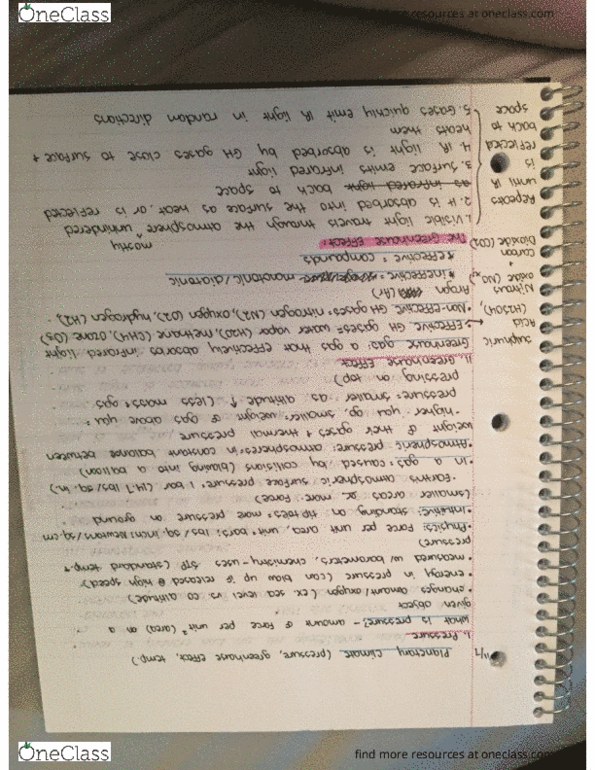 OneClass
find more resources at oneclass.com
11/7
Planetary Climate (pressure, greenhouse effect, temp.)
1. Pressure
what is pressure? - amount of force per unit² (area) on a
given object
• changes amount/oxygen (ex. sea level vs. CO altitude)
• energy in pressure (can blow up if released @ high speed)
• measured w/ barometers, chemistry - uses STP (standard temp. +
pressure)
Physics: Force per unit area, unit = bars: lbs/sq. inch: Newtons/sq.cm
• Intuitive: standing on tip toes = more pressure on ground
(smaller areas or more force)
- Earth's atmospheric surface pressure: 1 bar (14.7 lbs/sq. in.)
• In a gas: caused by collisions (blowing into a balloon)
• Atmospheric pressure: atmospheres = in constant balance between
weight of their gases + thermal pressure
- higher you go, smaller weight of gas above you =
pressure: smaller as altitude ↑ (less mass + gas
pressing on top)
11. Greenhouse Effect
Greenhouse gas: a gas that effectively absorbs infrared light
• Effective GH gases: water vapor (H2O), methane (CH4), ozone (O3)
• Non-effective GH gases: nitrogen (N2), oxygen (O2), hydrogen (H2),
Argon (Ar)
* ineffective = monotonic/diatomic
* effective = compounds
Sulphuric
Acid
(H2SO4),
Nitrous
oxide (NOx)
+
Carbon
Dioxide (CO2)
The Greenhouse Effect:
mostly
1. Visible light travels through the atmosphere ^ unhindered
2. It is absorbed into the surface as heat, or is reflected
as infrared light back to space
3. Surface emits infrared light
4. IR light is absorbed by GH gases close to surface +
heats them
5. Gases quickly emit IR light in random directions
Repeats
until IR
is
reflected
back to
space
OneClass
find more resources at oneclass.com